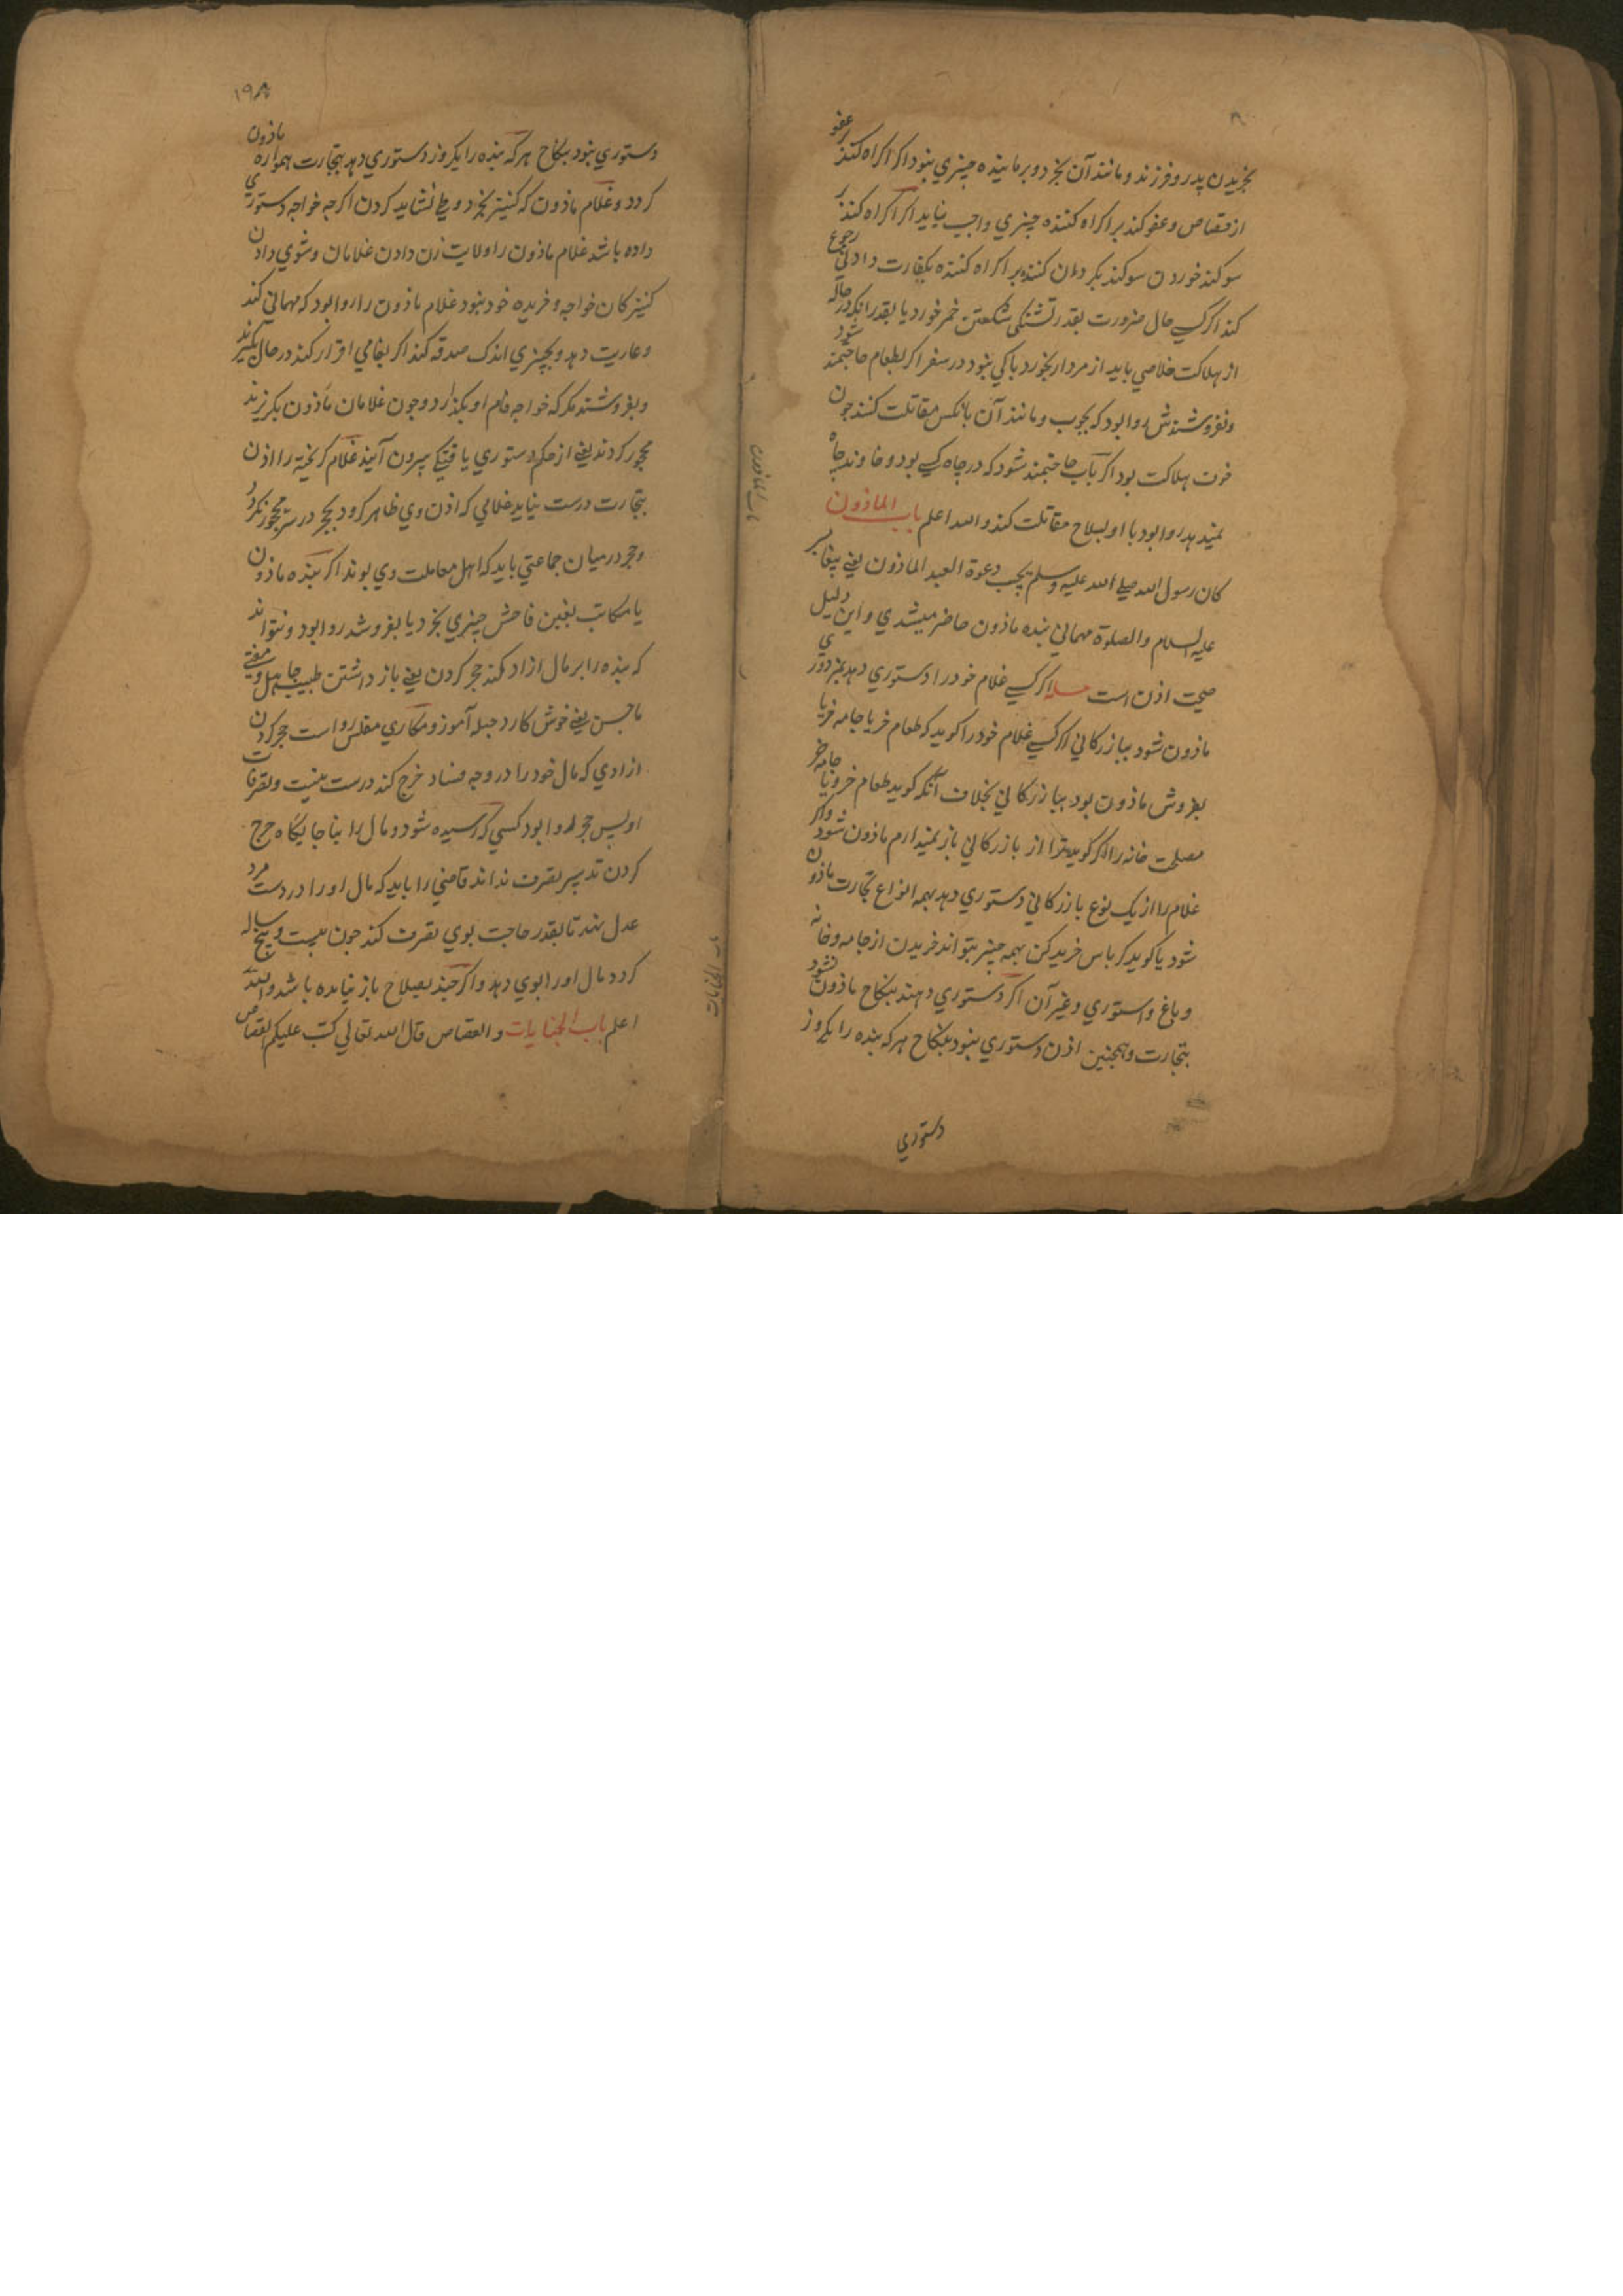 بخریدن پدر و فرزند و مانند آن بخرد و برماینده چیزی نبود اکر اکراه کنند بر عفو
از قصاص و عفو کند بر اکراه کننده چیزی واجب نیاید اکر اکراه کنند بر
سوکند خوردن سوکند بکردان کننده بر اکراه کننده بکفارت دادنی رجوع
کند اکر کسی حال ضرورت بقدر تشنکی شکستن خمر خورد یا بقدر انکه در حاله
از هلاکت خلاصی یابد از مردار بخورد باکی نبود در سفر اکر بطعام حاجتمند شود
ونفروشندش روا بود که بچوب و مانند آن با انکس مقاتلت کنند چون
خوف هلاکت بود اکر بآب حاجتمند شود که در چاه کسی بود و خاوند چاه
نمیدهد روا بود با او بسلاح مقاتلت کند والله اعلم باب الماذون
کان رسول الله صلی الله علیه وسلم یجیب دعوة العبد الماذون یعنی پیغامبر
علیه السلام والصلوة مهمانی بنده ماذون حاضر میشدی و این دلیل
صحت اذن است مسله اکر کسی غلام خود را دستوری دهد بمزدوری
ماذون شود ببازرکانی اکر کسی غلام خود را کوید که طعام خر یا جامه خر یا
بفروش ماذون بود ببازرکانی بخلاف آنکه کوید طعام خر و یا جامه خر
مصلحت خانه را اکر کوید ترا از بازرکانی باز نمیدارم ماذون شود و اکر
غلام را از یک نوع بازرکانی دستوری دهد بهمه انواع تجارت ماذون
شود یا کوید کرباس خرید کن بهمه چیز بتواند خریدن از جامه و خانه
و باغ و استوری و غیر آن اکر دستوری دهند بنکاح ماذون نشود
بتجارت و همچنین اذن دستوری نبود بنکاح هر که بنده را یکروز
دستوری
باب الماذون
۱۹۸
دستوری نبود بنکاح هر که بنده را یکروز دستوری دهد بتجارت همواره ماذون
کردد و غلام ماذون که کنیز بخرد وطی نشاید کردن اکرچه خواجه دستوری
داده باشد غلام ماذون را ولایت زن دادن غلامان و شوی دادن
کنیزکان خواجه و خریده خود نبود غلام ماذون را روا بود که مهمانی کند
و عاریت دهد و بچیزی اندک صدقه کند اکر بغامی اقرار کند در حال بکیرند
و بفروشند مکر که خواجه فام او بکذارد و چون غلامان ماذون بکریزند
محجور کردند یعنی از حکم دستوری یافتکی بیرون آیند غلام کریخته را اذن
بتجارت درست نیاید غلامی که اذن وی ظاهر کرد بحجر در سر محجور نکردد
و حجر در میان جماعتی باید که اهل معاملت وی بوند اکر بنده ماذون
یا مکاتب بغبن فاحش چیزی بخرد یا بفروشد روا بود و نتواند
که بنده را بر مال ازاد کند حجر کردن یعنی باز داشتن طبیب جاهل و مفتی
ماجن یعنی خوش کار و حیله آموز و مکاری مفلس رواست حجر کردن
ازادی که مال خود را در وجه فساد خرج کند درست نیست و تصرفات
او پس حجر روا بود کسی که رسیده شود و مال را بناجایکاه خرج
کردن تدبیر تصرف نداند قاضی را باید که مال او را در دست مرد
عدل نهد تا بقدر حاجت بوی تصرف کند چون بیست و پنج ساله
کردد مال او را بوی دهد و اکر چند بصلاح باز نیامده باشد والله
اعلم باب الجنایات و القصاص قال الله تعالی کتب علیکم القصاص
باب الجنایات